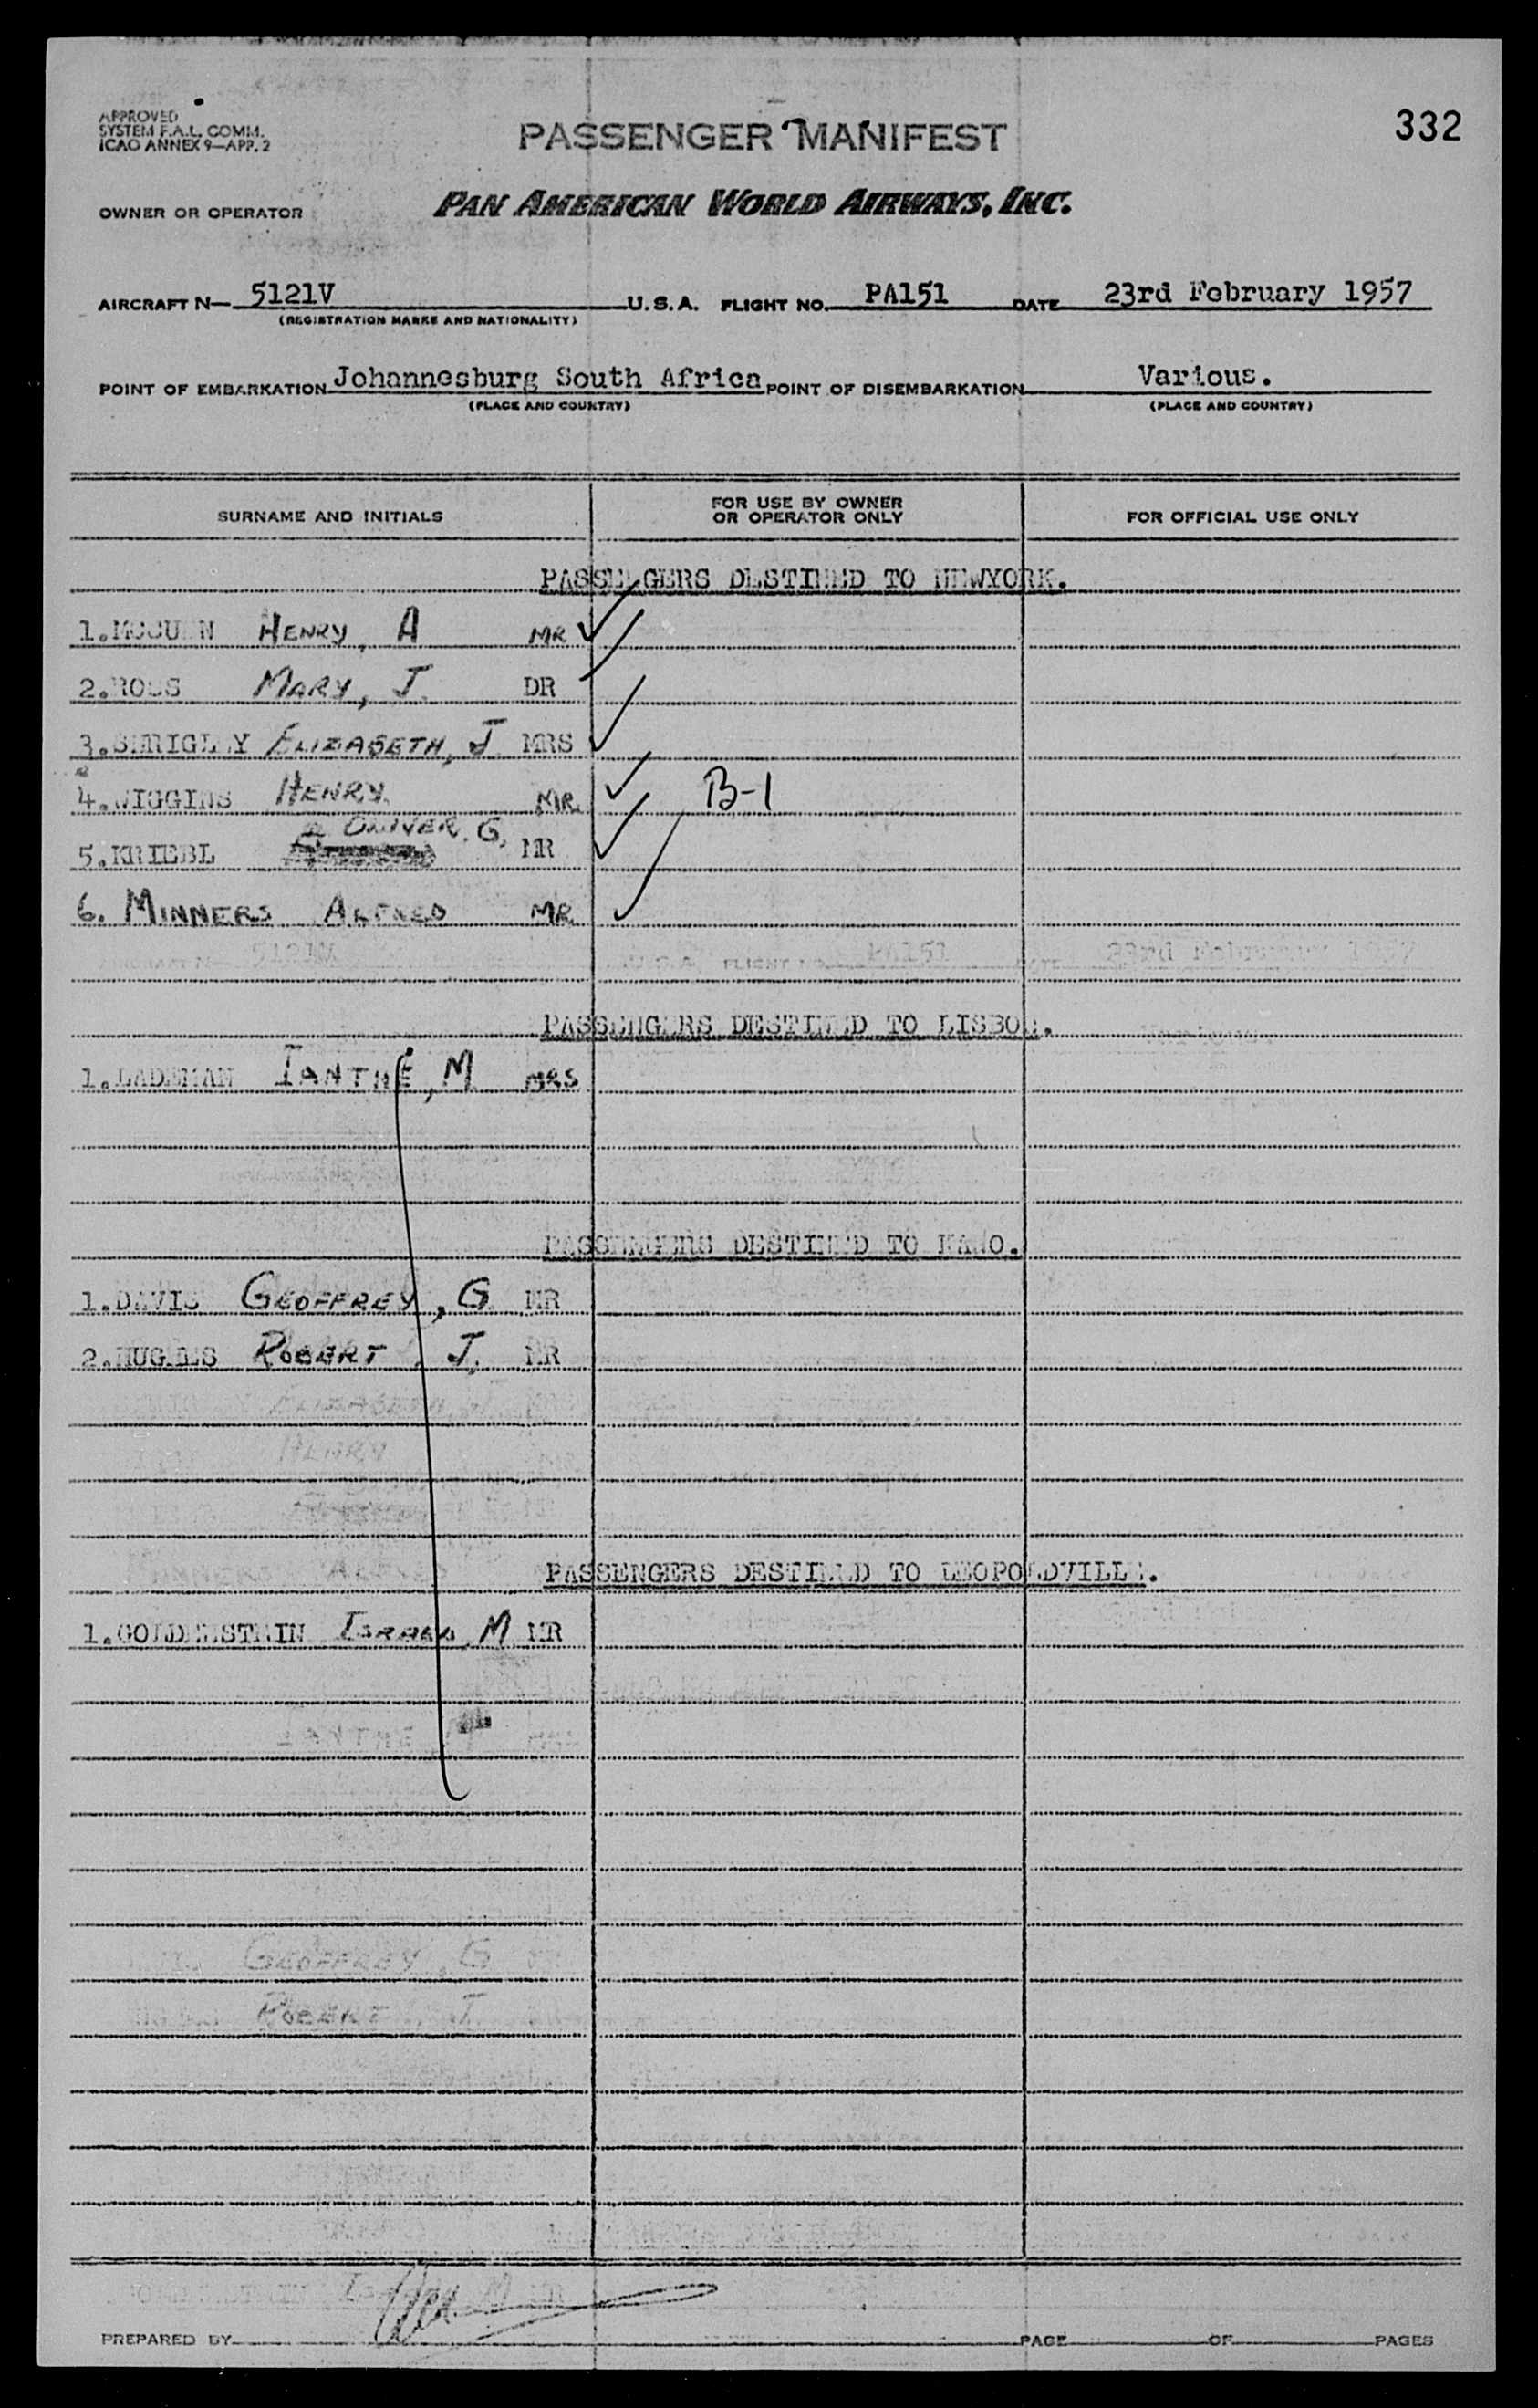 APPROVED
SYSTEM F.A.L. COMM.
ICAO ANNEX 9—APP. 2
PASSENGER MANIFEST
332
OWNER OR OPERATOR PAN AMERICAN WORLD AIRWAYS, INC.
AIRCRAFT N— 5121V U.S.A. FLIGHT NO. PA151 DATE 23rd February 1957
(REGISTRATION MARKS AND NATIONALITY)
POINT OF EMBARKATION Johannesburg South Africa POINT OF DISEMBARKATION Various.
(PLACE AND COUNTRY) (PLACE AND COUNTRY)
SURNAME AND INITIALS FOR USE BY OWNER OR OPERATOR ONLY FOR OFFICIAL USE ONLY
PASSENGERS DESTINED TO NEWYORK.
1. HENRY, A MR
2. ROSS MARY, J. DR
3. ELIZABETH, J MRS
4. WIGGINS HENRY. MR. B-1
5. KRIEBL OLIVER. G, MR
6. MINNERS ALFRED MR
PASSENGERS DESTINED TO LISBON.
1. IANTHE, M MRS
PASSENGERS DESTINED TO KANO.
1. DAVIS GEOFFREY, G MR
2. HUGHES ROBERT, J, MR
PASSENGERS DESTINED TO LEOPOLDVILLE.
1. ISRAEL, M MR
PREPARED BY PAGE OF PAGES